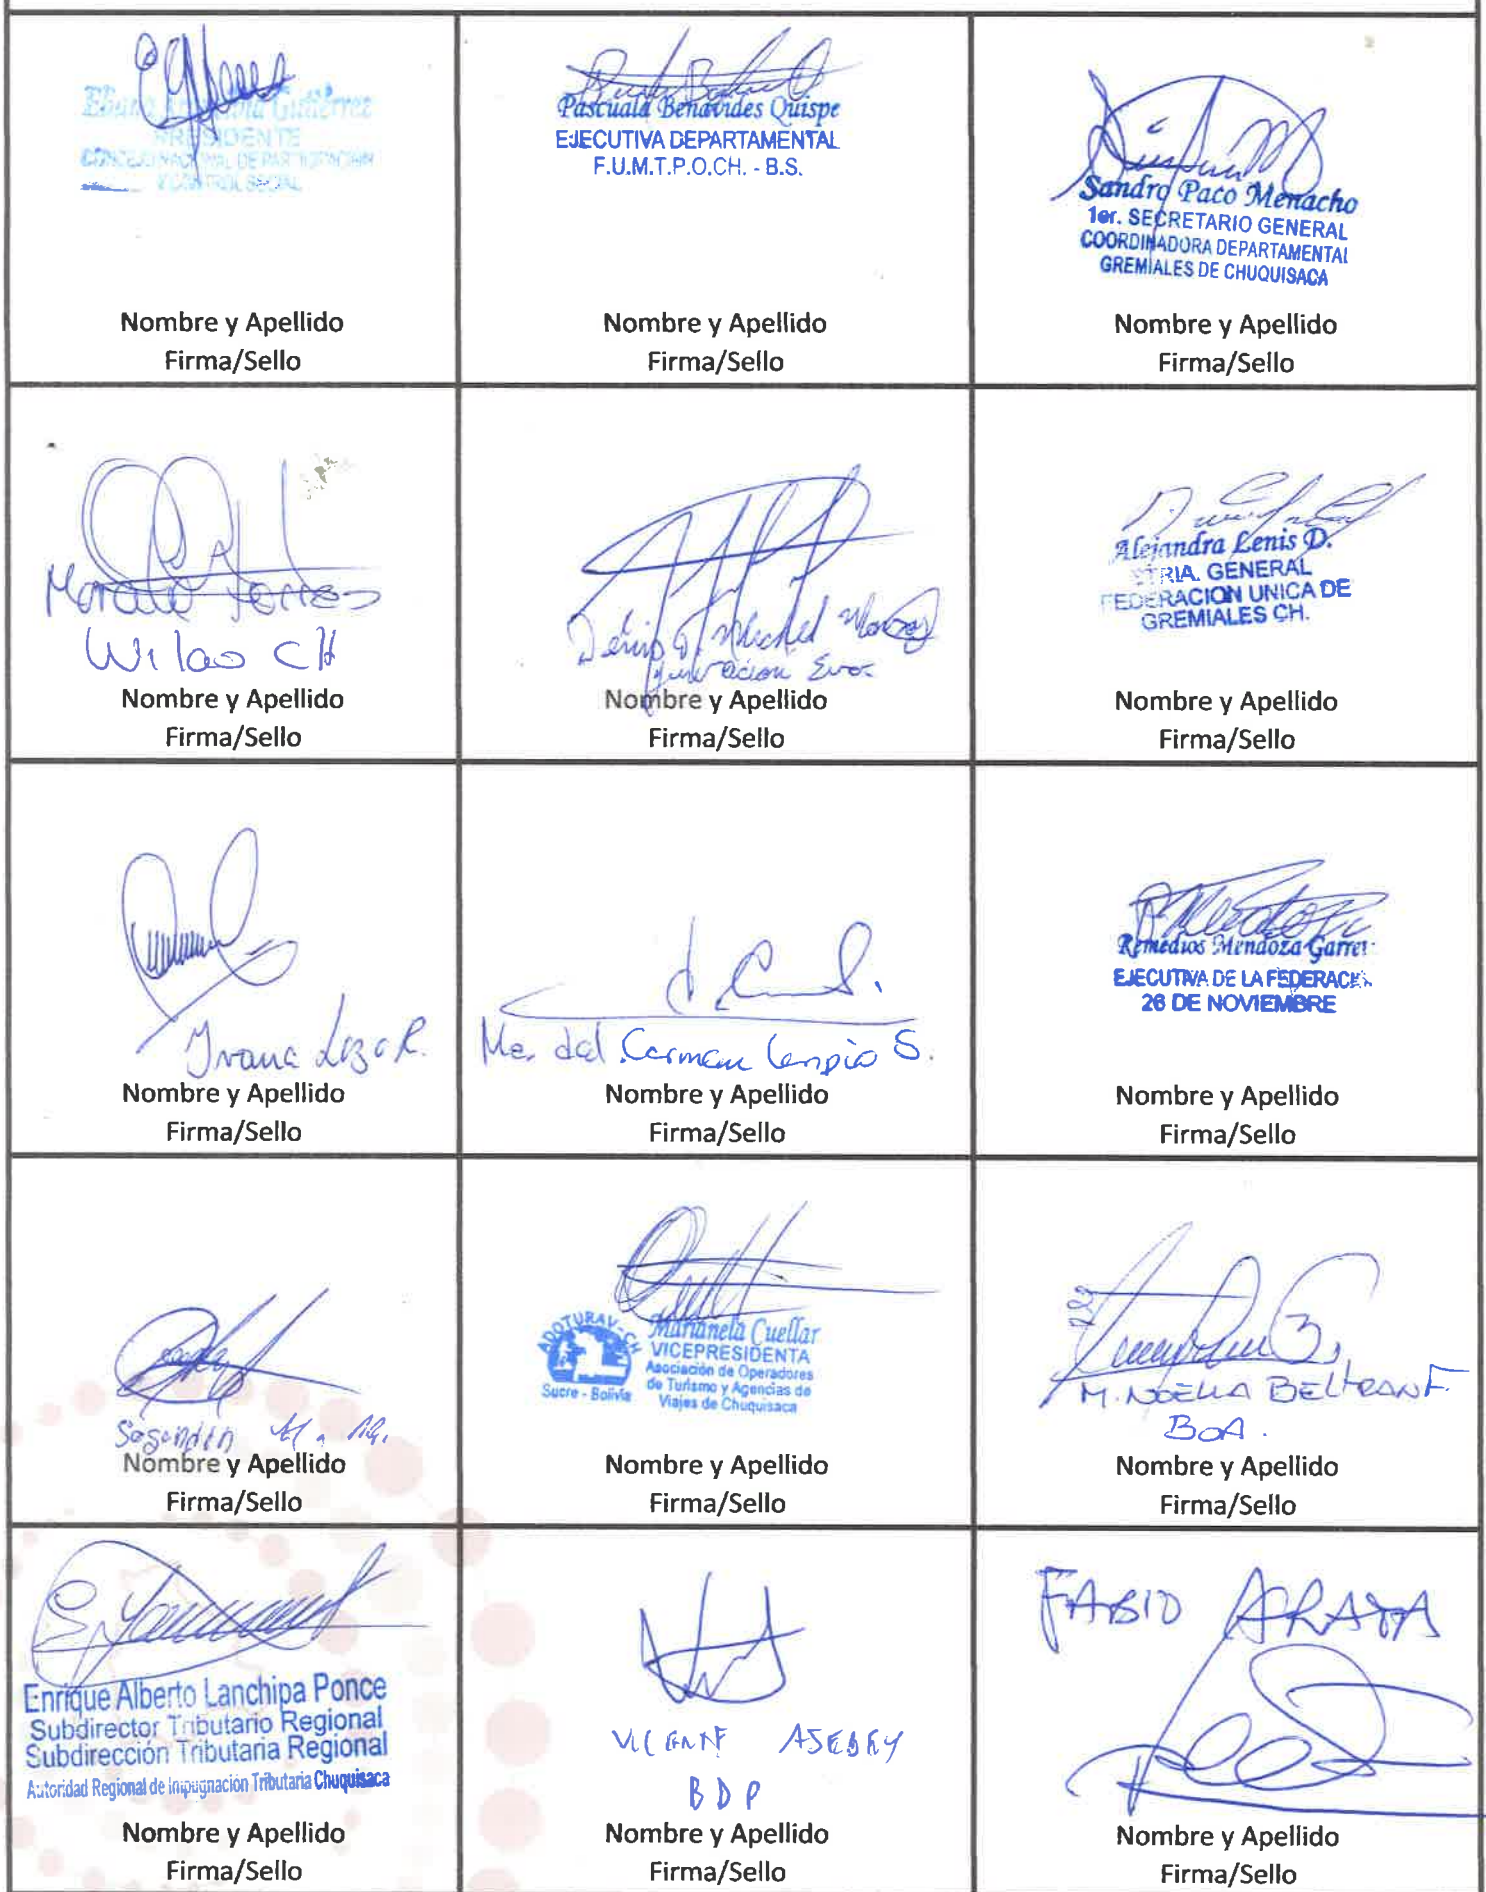 Gutiérrez
PRESIDENTE
Y CONTROL SOCIAL
Nombre y Apellido
Firma/Sello
Pascuala Benavides Quispe
EJECUTIVA DEPARTAMENTAL
F.U.M.T.P.O.CH. - B.S.
Nombre y Apellido
Firma/Sello
Sandro Paco Menacho
1er. SECRETARIO GENERAL
COORDINADORA DEPARTAMENTAL
GREMIALES DE CHUQUISACA
Nombre y Apellido
Firma/Sello
Nombre y Apellido
Firma/Sello
Nombre y Apellido
Firma/Sello
Alejandra Lenis D.
STRIA. GENERAL
FEDERACION UNICA DE
GREMIALES CH.
Nombre y Apellido
Firma/Sello
Nombre y Apellido
Firma/Sello
Ma. del Carmen S.
Nombre y Apellido
Firma/Sello
Remedios Mendoza
EJECUTIVA DE LA
26 DE NOVIEMBRE
Nombre y Apellido
Firma/Sello
Nombre y Apellido
Firma/Sello
ADOTURAV-CH
Sucre - Bolivia
Marianela Cuellar
VICEPRESIDENTA
Asociación de Operadores
de Turismo y Agencias de
Viajes de Chuquisaca
Nombre y Apellido
Firma/Sello
M. NOELIA BELTRAN F.
BOA.
Nombre y Apellido
Firma/Sello
Enrique Alberto Lanchipa Ponce
Subdirector Tributario Regional
Subdirección Tributaria Regional
Autoridad Regional de Impugnación Tributaria Chuquisaca
Nombre y Apellido
Firma/Sello
BDP
Nombre y Apellido
Firma/Sello
FABIO ARAYA
Nombre y Apellido
Firma/Sello